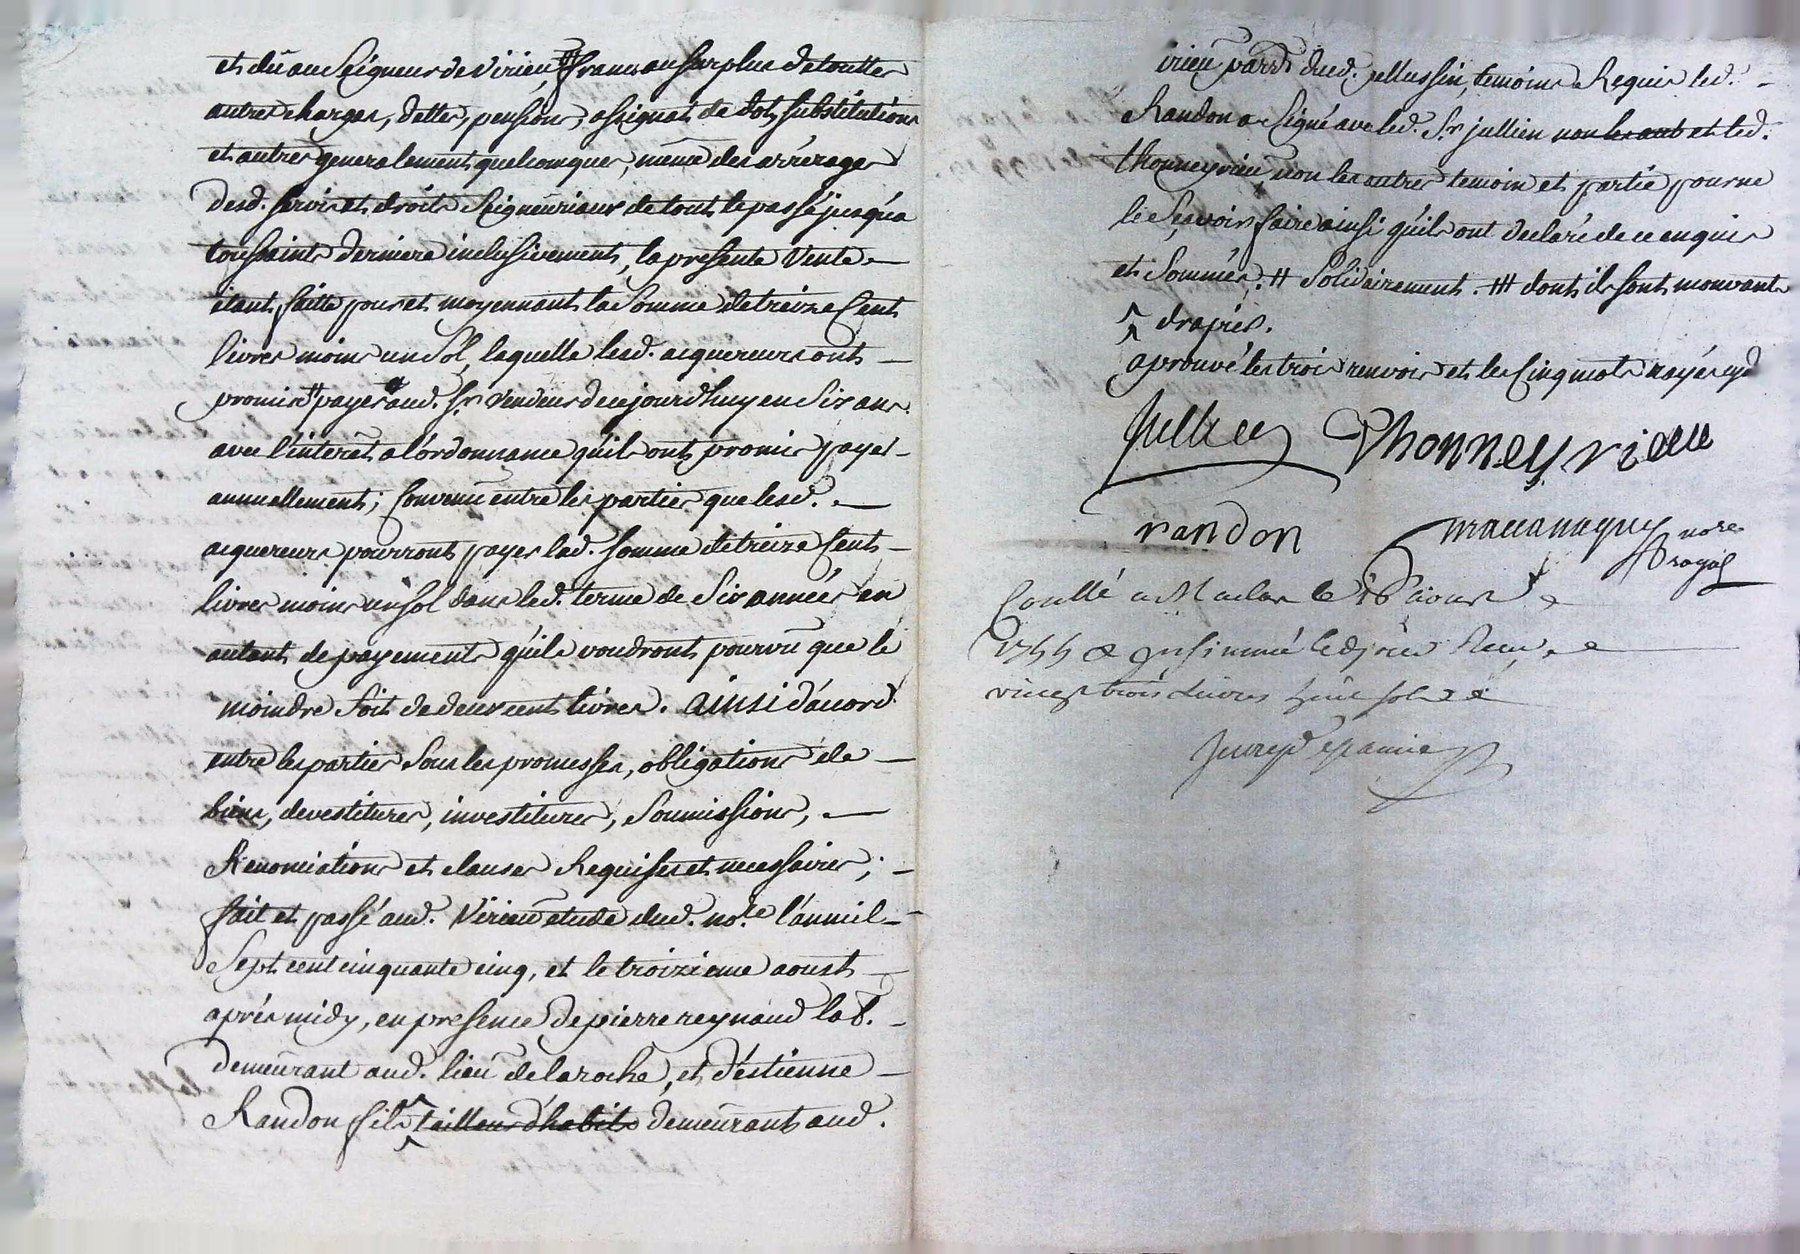 et dû au Seigneur de Virieu, ## francs au surplus de touttes
autres charges, dettes, pensions, assignat de dot, substitutions
et autres generalement quelconques, même des arrérages
desd. servis et droits Seigneuriaux de tout le passé jusqu'a
toussaints derniere inclusivement, la presente Vente —
étant faitte pour et moyennant la Somme de treize Cent
livres moins un Sol, laquelle lesd. acquereurs ont —
promis # payer aud. Sr. Vendeur de ce jourd'huy en Six ans
avec l'interet a l'ordonnance qu'ils ont promis payer —
annuellement; Convenu entre les parties que lesd. —
acquereurs pourront payer lad. Somme de treize Cents —
livres moins un sol dans led. terme de Six années en
autant de payements qu'ils voudront pourvû que le
moindre soit de deux cent livres. ainsi d'acord
entre les parties Sous les promesses, obligations de —
biens, devestitures, investitures, Soumissions, —
Renonciations et clauses Requises et necessaires; —
fait et passé aud. Virieu étude dud. nore. l'an mil —
Sept cent cinquante cinq, et le troizieme aoust —
aprés midy, en presence de pierre reynaud lab. —
demeurant aud. lieu de la roche, et d'estienne —
Randon fils ^ tailleur d'habits demeurant aud.
irieu parr. dud. pellussin, temoins Requis led. —
Randon a Signé avec led. Sr jullien non les aut et led.
thonneyrieu non les autres temoin et partie pour ne
le Sçavoir faire ainsi qu'ils ont declaré de ce enquis
et Sommés. # Solidairement. ## dont ils sont mouvants
^ drapier.
aprouvé les trois renvois et les Cinq mots rayés
Jullien Thonneyrieu
randon nore
royal
Conllé a Maclas le 16 aoust
1755 & insinué led jour Recu
vingt trois livres huit sols